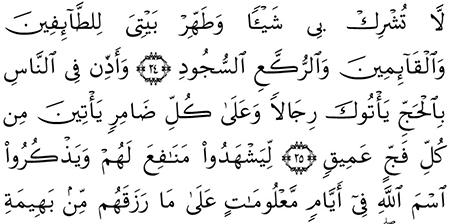 لَّا تُشْرِكْ بِى شَيْـًٔا وَطَهِّرْ بَيْتِىَ لِلطَّآئِفِينَ
وَٱلْقَآئِمِينَ وَٱلرُّكَّعِ ٱلسُّجُودِ ﴿٢٤﴾ وَأَذِّن فِى ٱلنَّاسِ
بِٱلْحَجِّ يَأْتُوكَ رِجَالًا وَعَلَىٰ كُلِّ ضَامِرٍ يَأْتِينَ مِن
كُلِّ فَجٍّ عَمِيقٍ ﴿٢٥﴾ لِّيَشْهَدُوا۟ مَنَـٰفِعَ لَهُمْ وَيَذْكُرُوا۟
ٱسْمَ ٱللَّهِ فِىٓ أَيَّامٍ مَّعْلُومَـٰتٍ عَلَىٰ مَا رَزَقَهُم مِّنۢ بَهِيمَةِ